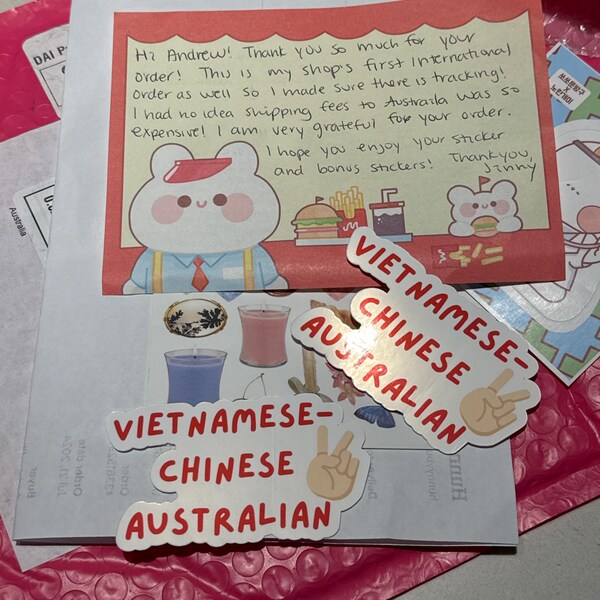 Hi Andrew! Thank you so much for your
order! This is my shop's first International
order as well so I made sure there is tracking!
I had no idea shipping fees to Austraila was so
expensive! I am very grateful for your order.
I hope you enjoy your sticker
and bonus stickers! Thankyou,
Jinny
VIETNAMESE-
CHINESE
AUSTRALIAN
VIETNAMESE-
CHINESE
AUSTRALIAN
Australia